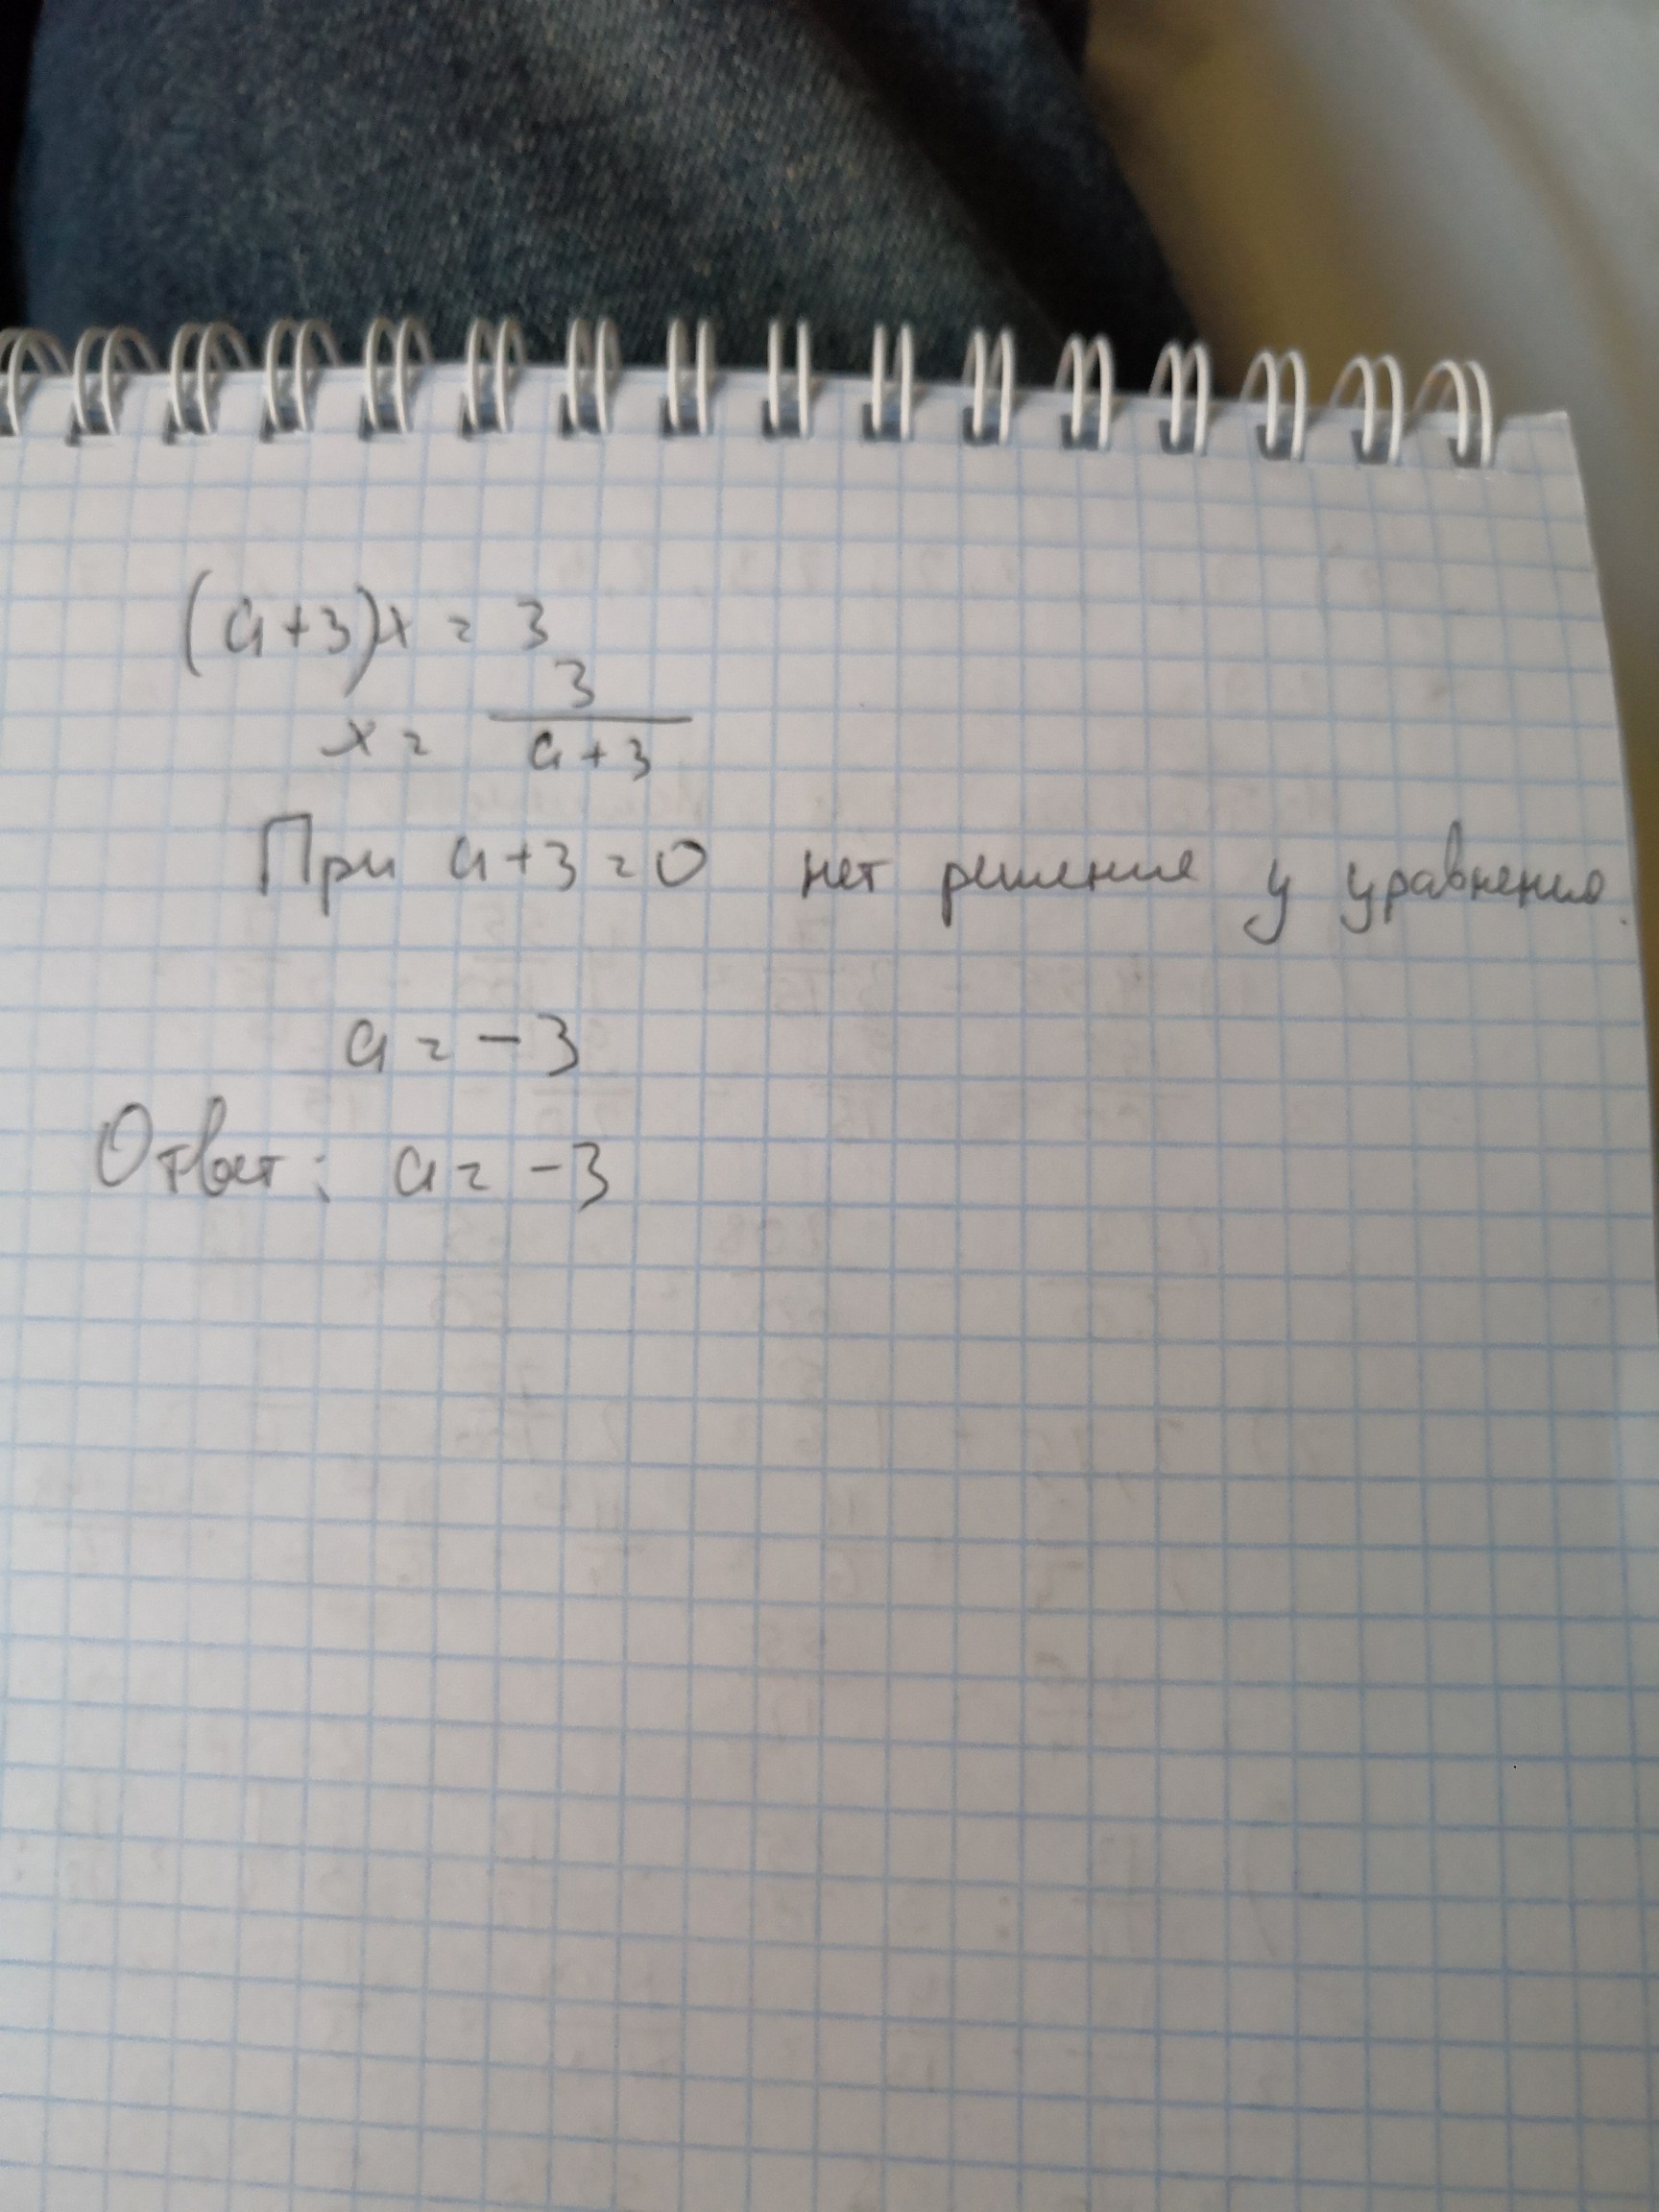 (a+3)x = 3
x = 3/(a+3)
При a+3=0 нет решение у уравнения.
a = -3
Ответ: a = -3